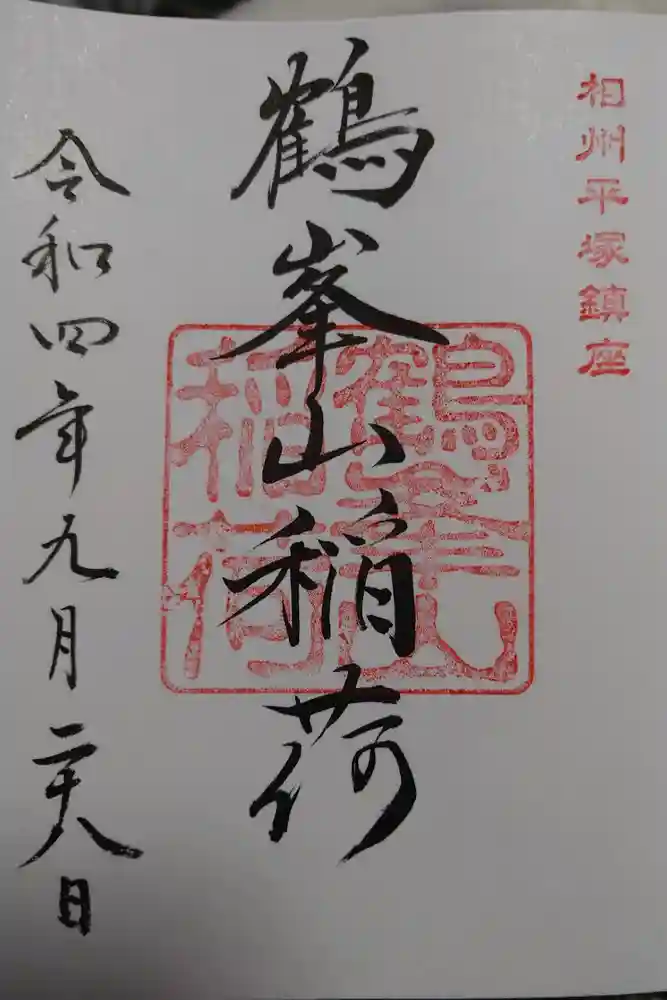 相州平塚鎮座
鶴峯山稲荷
鶴峯山稲荷
令和四年九月二十八日